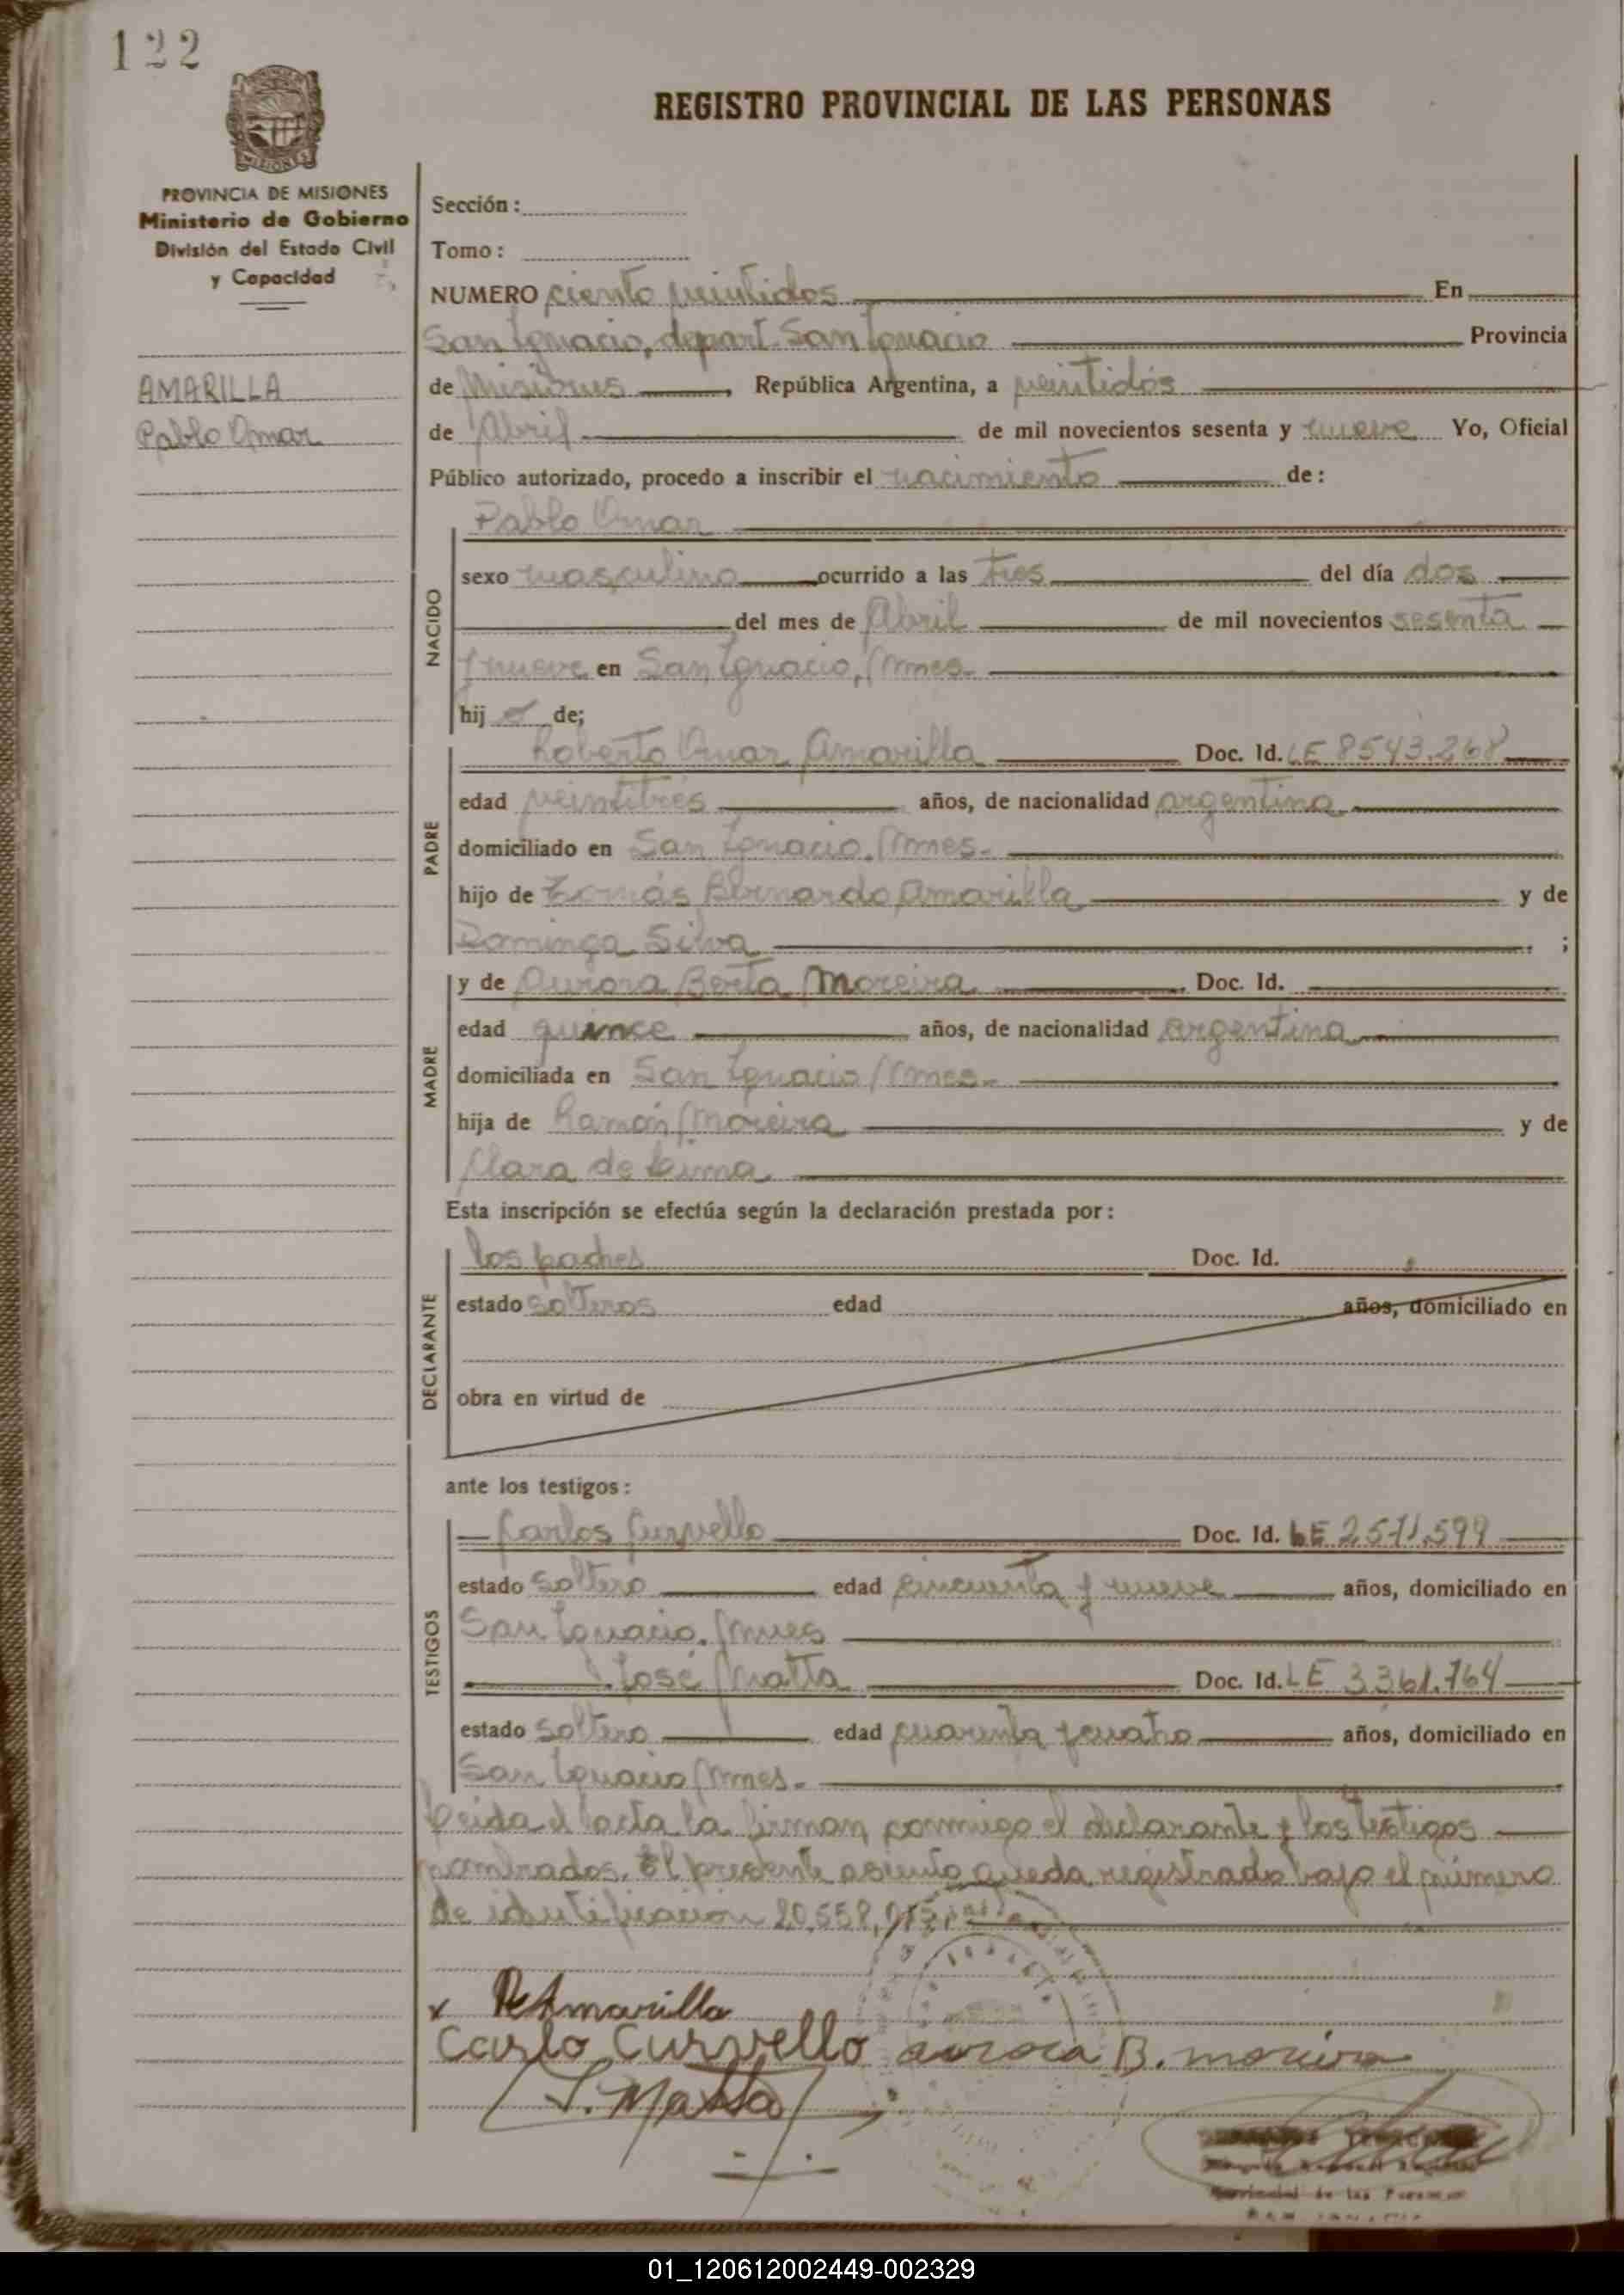 122
REGISTRO PROVINCIAL DE LAS PERSONAS
MISIONES
PROVINCIA DE MISIONES
Ministerio de Gobierno
División del Estado Civil
y Capacidad
AMARILLA
Pablo Omar
Sección:
Tomo:
NUMERO ciento veintidos En
San Ignacio, depart. San Ignacio Provincia
de Misiones, República Argentina, a veintidós
de Abril de mil novecientos sesenta y nueve Yo, Oficial
Público autorizado, procedo a inscribir el nacimiento de:
NACIDO
Pablo Omar
sexo masculino ocurrido a las tres del día dos
del mes de Abril de mil novecientos sesenta
y nueve en San Ignacio, Mnes.
hij o de;
PADRE
Roberto Omar Amarilla Doc. Id. LE 8543.268
edad veintitrés años, de nacionalidad argentina
domiciliado en San Ignacio. Mnes.
hijo de Tomás Bernardo Amarilla y de
Dominga Silva ;
MADRE
y de Aurora Berta Moreira Doc. Id.
edad quince años, de nacionalidad argentina
domiciliada en San Ignacio Mnes.
hija de Ramón Moreira y de
Clara de Lima
Esta inscripción se efectúa según la declaración prestada por:
DECLARANTE
los padres Doc. Id.
estado solteros edad años, domiciliado en
obra en virtud de
ante los testigos:
TESTIGOS
Carlos Curvello Doc. Id. LE 2571.599
estado soltero edad cincuenta y nueve años, domiciliado en
San Ignacio. Mnes
José Matta Doc. Id. LE 3361.764
estado soltero edad cuarenta y cuatro años, domiciliado en
San Ignacio Mnes.
Leida el acta la firman conmigo el declarante y los testigos
nombrados. El presente asiento queda registrado bajo el número
de identificación
R Amarilla
Carlo Curvello aurora B. moreira
J. Matta
Provincial de las Personas
SAN IGNACIO
01_120612002449-002329